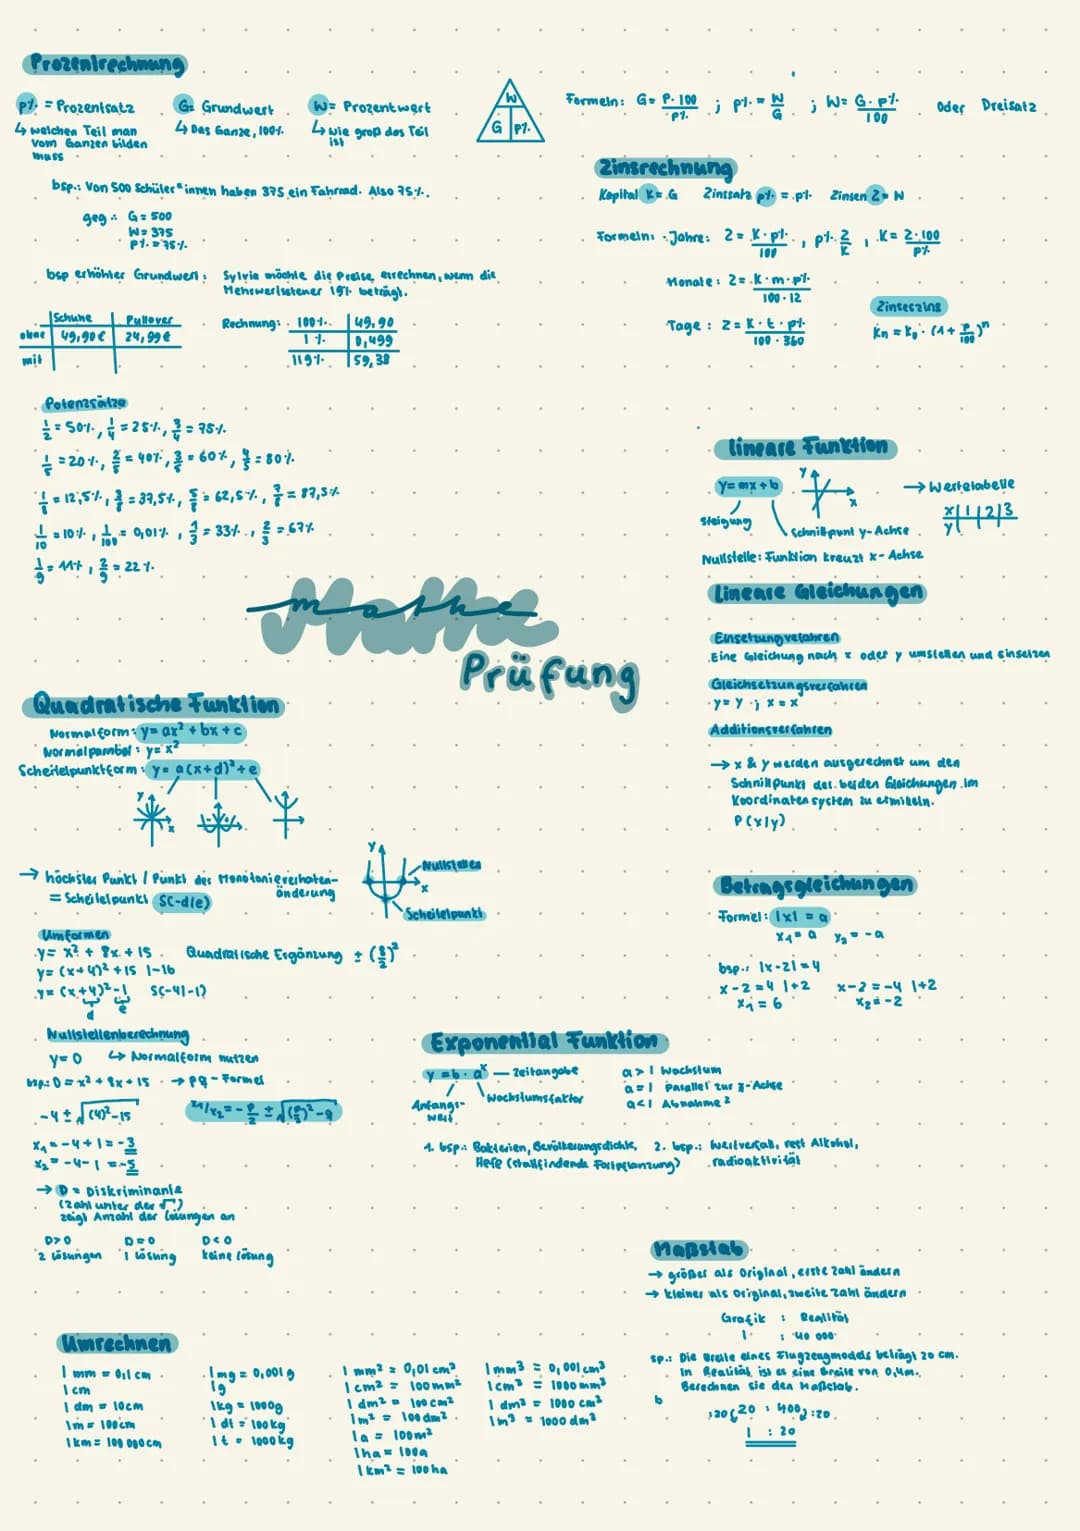 Prozentrechnung
p% = Prozentsatz
↳ welchen Teil man
vom Ganzen bilden
muss
G= Grundwert
↳ Das Ganze, 100%
W= Prozentwert
↳ wie groß das Teil
ist
W
G p%
Formeln: G= P·100/p% ; p% = W/G ; W= G·p%/100 oder Dreisatz
bsp.: Von 500 Schüler*innen haben 375 ein Fahrrad. Also 75%.
geg.: G = 500
W = 375
P% = 75%
bsp erhöhter Grundwert: Sylvia möchte die Preise errechnen, wenn die
Mehrwertsteuer 19% beträgt.
Schuhe Pullover
ohne 49,90€ 24,99€
mit
Rechnung: 100% 49,90
1% 0,499
119% 59,38
Zinsrechnung
Kapital K = G Zinssatz p% = p% Zinsen Z = W
Formeln: Jahre: Z = K·p%/100 , p% Z/K , K = Z·100/p%
Monate: Z = K·m·p%/100·12
Tage: Z = K·t·p%/100·360
Zinseszins
Kn = K₀ · (1 + p/100)ⁿ
Potenzsätze
1/2 = 50%, 1/4 = 25%, 3/4 = 75%
1/5 = 20%, 2/5 = 40%, 3/5 = 60%, 4/5 = 80%
1/8 = 12,5%, 3/8 = 37,5%, 5/8 = 62,5%, 7/8 = 87,5%
1/10 = 10%, 1/100 = 0,01%, 1/3 = 33%, 2/3 = 67%
1/9 = 11%, 2/9 = 22%
mathe
Prüfung
lineare Funktion
y = mx + b
Steigung
Schnittpunt y-Achse
y
x
→ Wertetabelle
x 1 2 3
y
Nullstelle: Funktion kreuzt x-Achse
Lineare Gleichungen
Einsetzungverfahren
Eine Gleichung nach x oder y umstellen und einsetzen
Gleichsetzungsverfahren
y = y ; x = x
Additionsverfahren
→ x & y werden ausgerechnet um den
Schnittpunkt der beiden Gleichungen im
Koordinatensystem zu ermitteln.
P (x/y)
Quadratische Funktion
Normalform: y = ax² + bx + c
Normalparabel: y = x²
Scheitelpunktform: y = a(x+d)²+e
y
x
→ höchster Punkt / Punkt der Monotonieverhaten-
änderung
= Scheitelpunkt SC-d/e)
y
x
Nullstellen
Scheitelpunkt
Umformen
y = x² + 8x + 15 Quadratische Ergänzung ± (8/2)²
y = (x+4)² + 15 |-16
y = (x+4)² - 1 S(-4|-1)
d e
Nullstellenberechnung
y = 0 ↳ Normalform nutzen
bsp.: 0 = x² + 8x + 15 → pq-Formel
-4 ± √(4)² - 15
x₁/x₂ = -p/2 ± √(p/2)² - q
x₁ = -4 + 1 = -3
x₂ = -4 - 1 = -5
→ D = Diskriminante
(Zahl unter der √)
zeigt Anzahl der Lösungen an
D>0 D=0 D<0
2 Lösungen 1 Lösung keine Lösung
Betragsgleichungen
Formel: |x| = a
x₁ = a x₂ = -a
bsp.: |x-2| = 4
x - 2 = 4 |+2 x - 2 = -4 |+2
x₁ = 6 x₂ = -2
Exponential Funktion
y = b · aˣ — Zeitangabe
Anfangs-
wert
Wachstumsfaktor
a > 1 Wachstum
a = 1 parallel zur x-Achse
a < 1 Abnahme
1. bsp.: Bakterien, Bevölkerungsdichte,
Hefe (stattfindende Fortpflanzung)
2. bsp.: Wertverfall, rest Alkohol,
radioaktivität
Maßstab
→ größer als Original, erste Zahl ändern
→ kleiner als Original, zweite Zahl ändern
Grafik : Realität
1 : 40 000
sp.: Die Breite eines Flugzeugmodels beträgt 20 cm.
In Realität ist es eine Breite von 0,4m.
Berechnen sie den Maßstab.
b
:20 20 : 400 :20
1 : 20
Umrechnen
1 mm = 0,1 cm
1 cm
1 dm = 10cm
1m = 100cm
1km = 100 000cm
1mg = 0,001g
1g
1kg = 1000g
1 dt = 100kg
1t = 1000kg
1 mm² = 0,01 cm²
1cm² = 100mm²
1dm² = 100 cm²
1m² = 100dm²
1a = 100m²
1ha = 100a
1km² = 100ha
1mm³ = 0,001cm³
1cm³ = 1000mm³
1 dm³ = 1000 cm³
1m³ = 1000 dm³